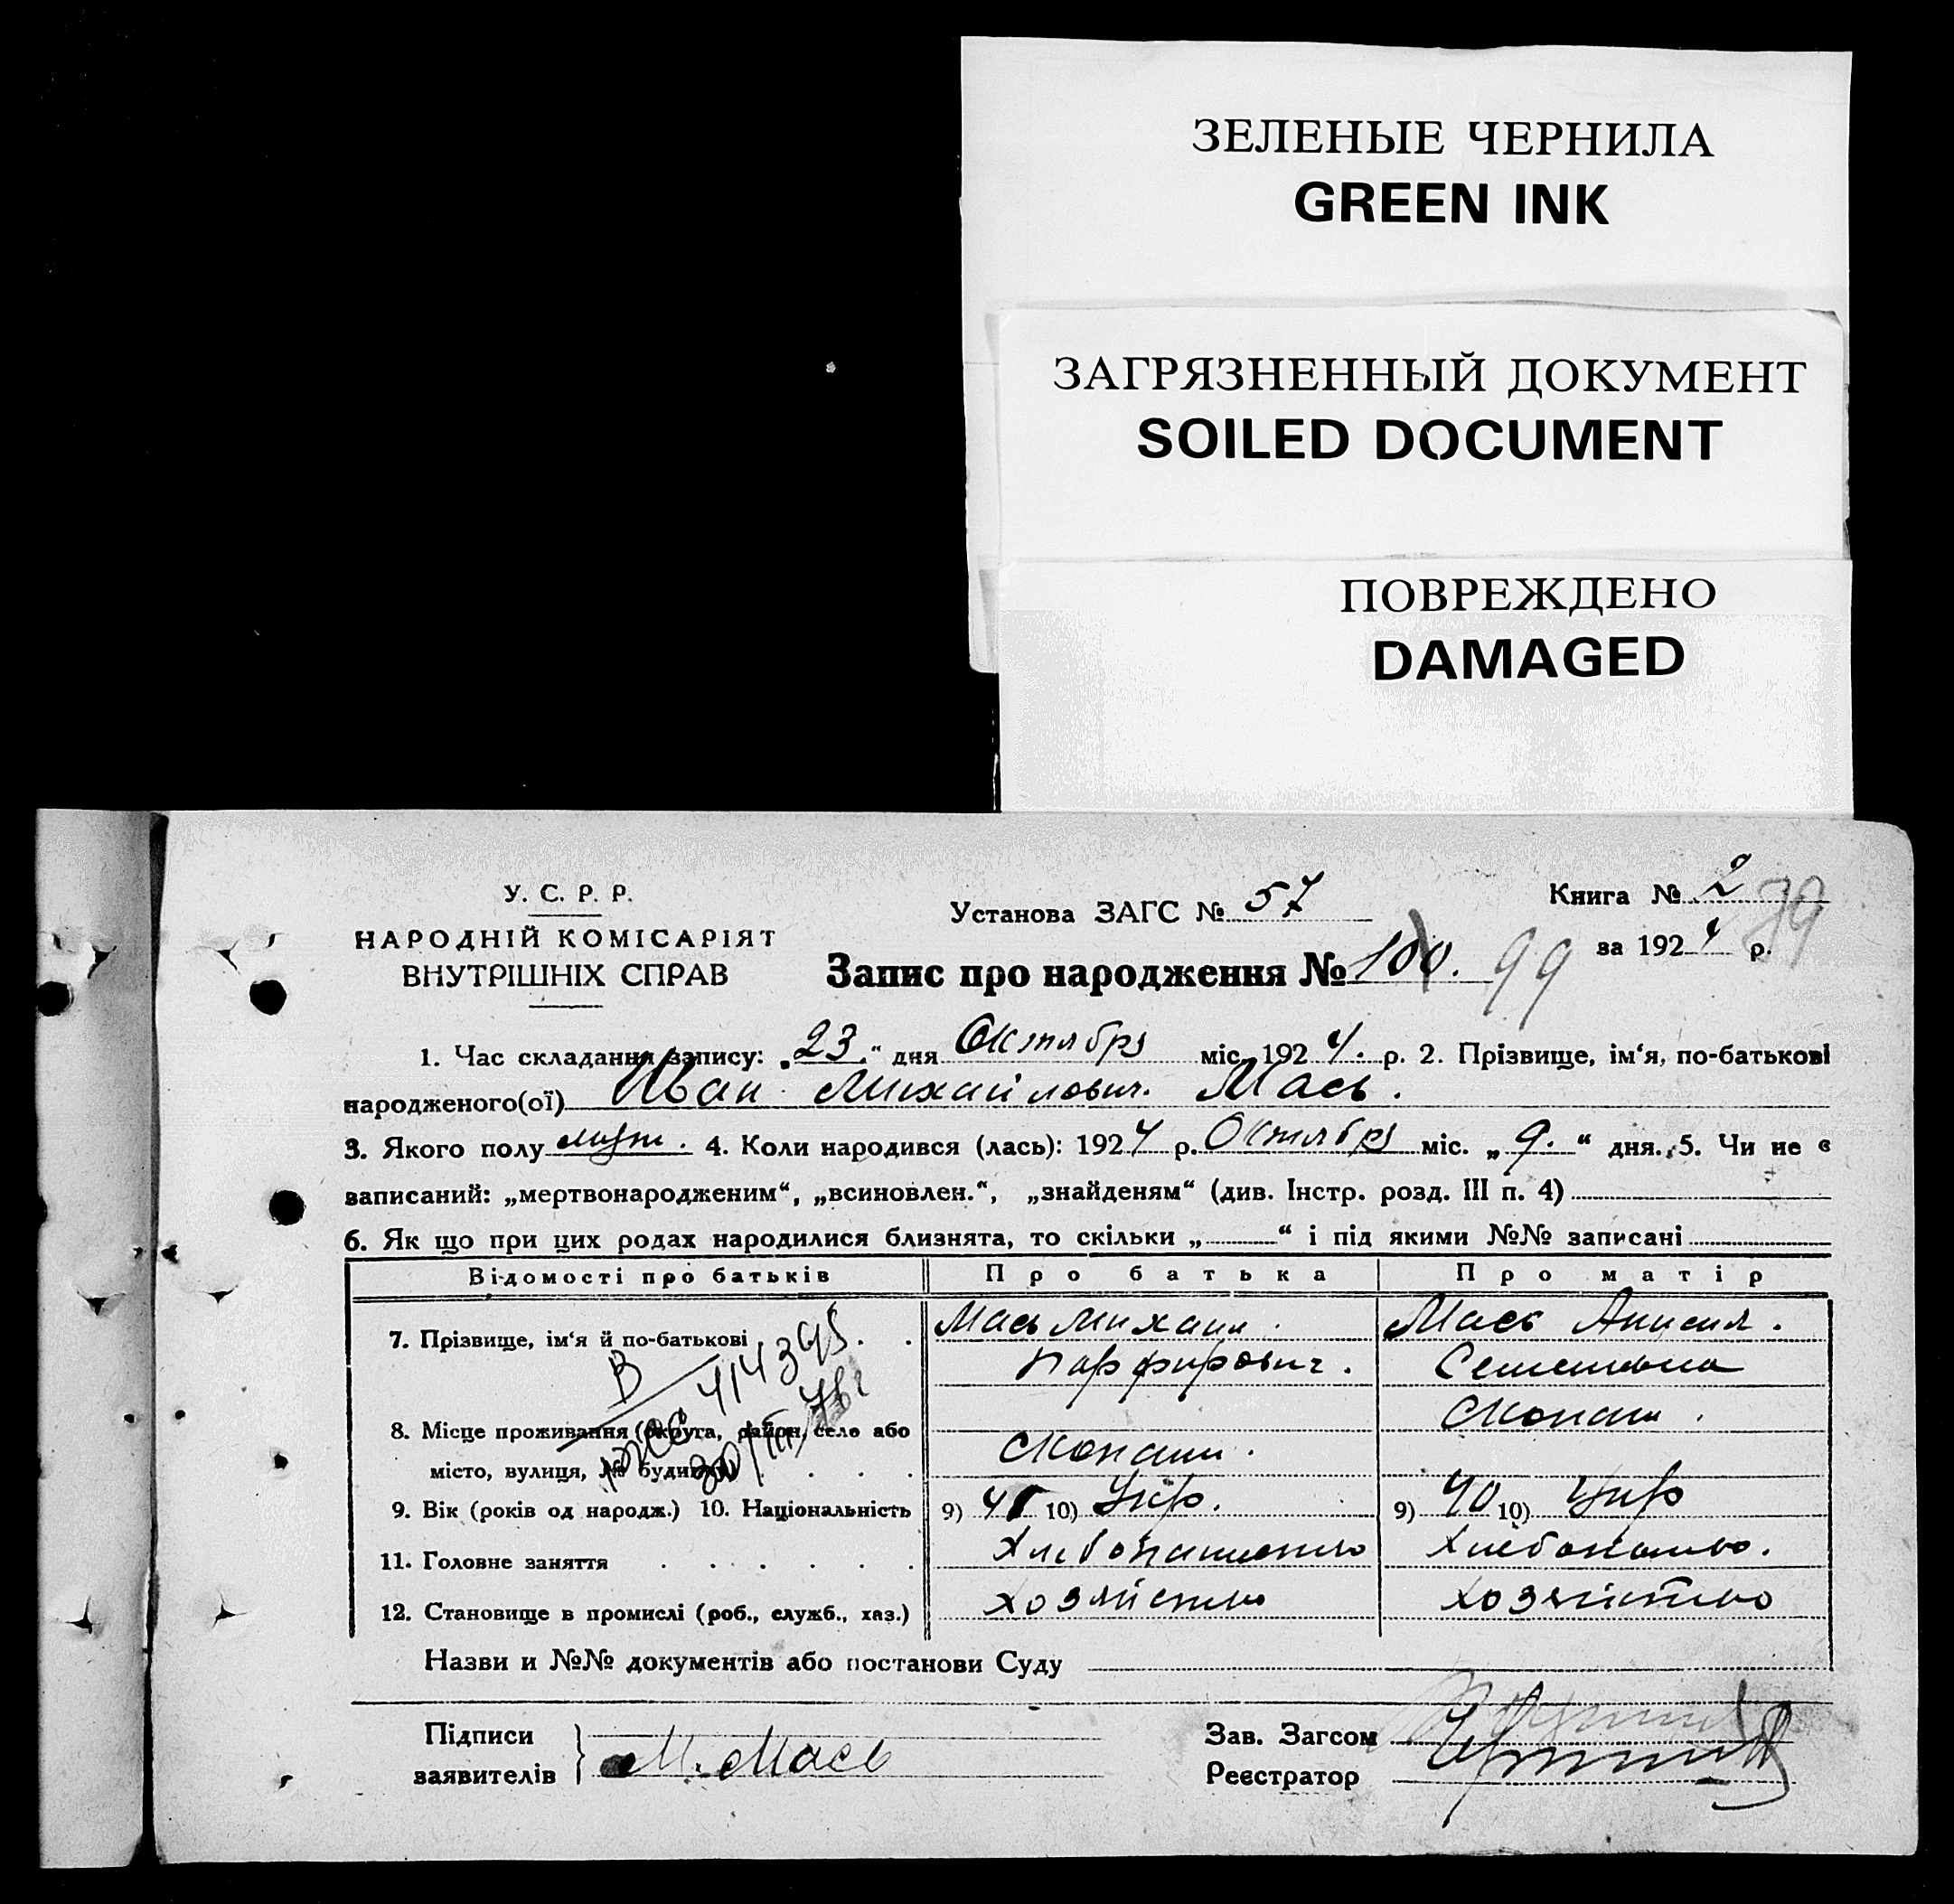 ЗЕЛЕНЫЕ ЧЕРНИЛА
GREEN INK
ЗАГРЯЗНЕННЫЙ ДОКУМЕНТ
SOILED DOCUMENT
ПОВРЕЖДЕНО
DAMAGED
У. С. Р. Р.
НАРОДНІЙ КОМІСАРІЯТ
ВНУТРІШНІХ СПРАВ
Установа ЗАГС № 57
Книга № 2 79
за 1924 р.
Запис про народження № 100. 99
1. Час складання запису: „23“ дня Октября міс. 1924. р. 2. Прізвище, ім‘я, по-батькові
народженого(ої) Иван Михайлович Мась.
3. Якого полу муж. 4. Коли народився (лась): 1924 р. Октября міс. „9.“ дня. 5. Чи не є
записаний: „мертвонародженим“, „всиновлен.“, „знайденям“ (див. Інстр. розд. III п. 4)
6. Як що при цих родах народилися близнята, то скільки „ “ і під якими №№ записані
Відомості про батьків Про батька Про матір
7. Прізвище, ім‘я й по-батькові . . Мась Михаил. Мась Анисия.
Парфирович. Семеновна
В 414395
8. Місце проживання (округа, район, село або Скопаши. Скопаши.
місто, вулиця, № будинку) . . .
9. Вік (років од народж.) 10. Національність 9) 10) Укр. 9) 40 10) Укр
11. Головне заняття . . . . . . Хлебопашество Хлебопашво.
12. Становище в промислі (роб., служб., хаз.) хозяйство хозяйство
Назви и №№ документів або постанови Суду
Підписи
заявителів М. Мась
Зав. Загсом
Реєстратор